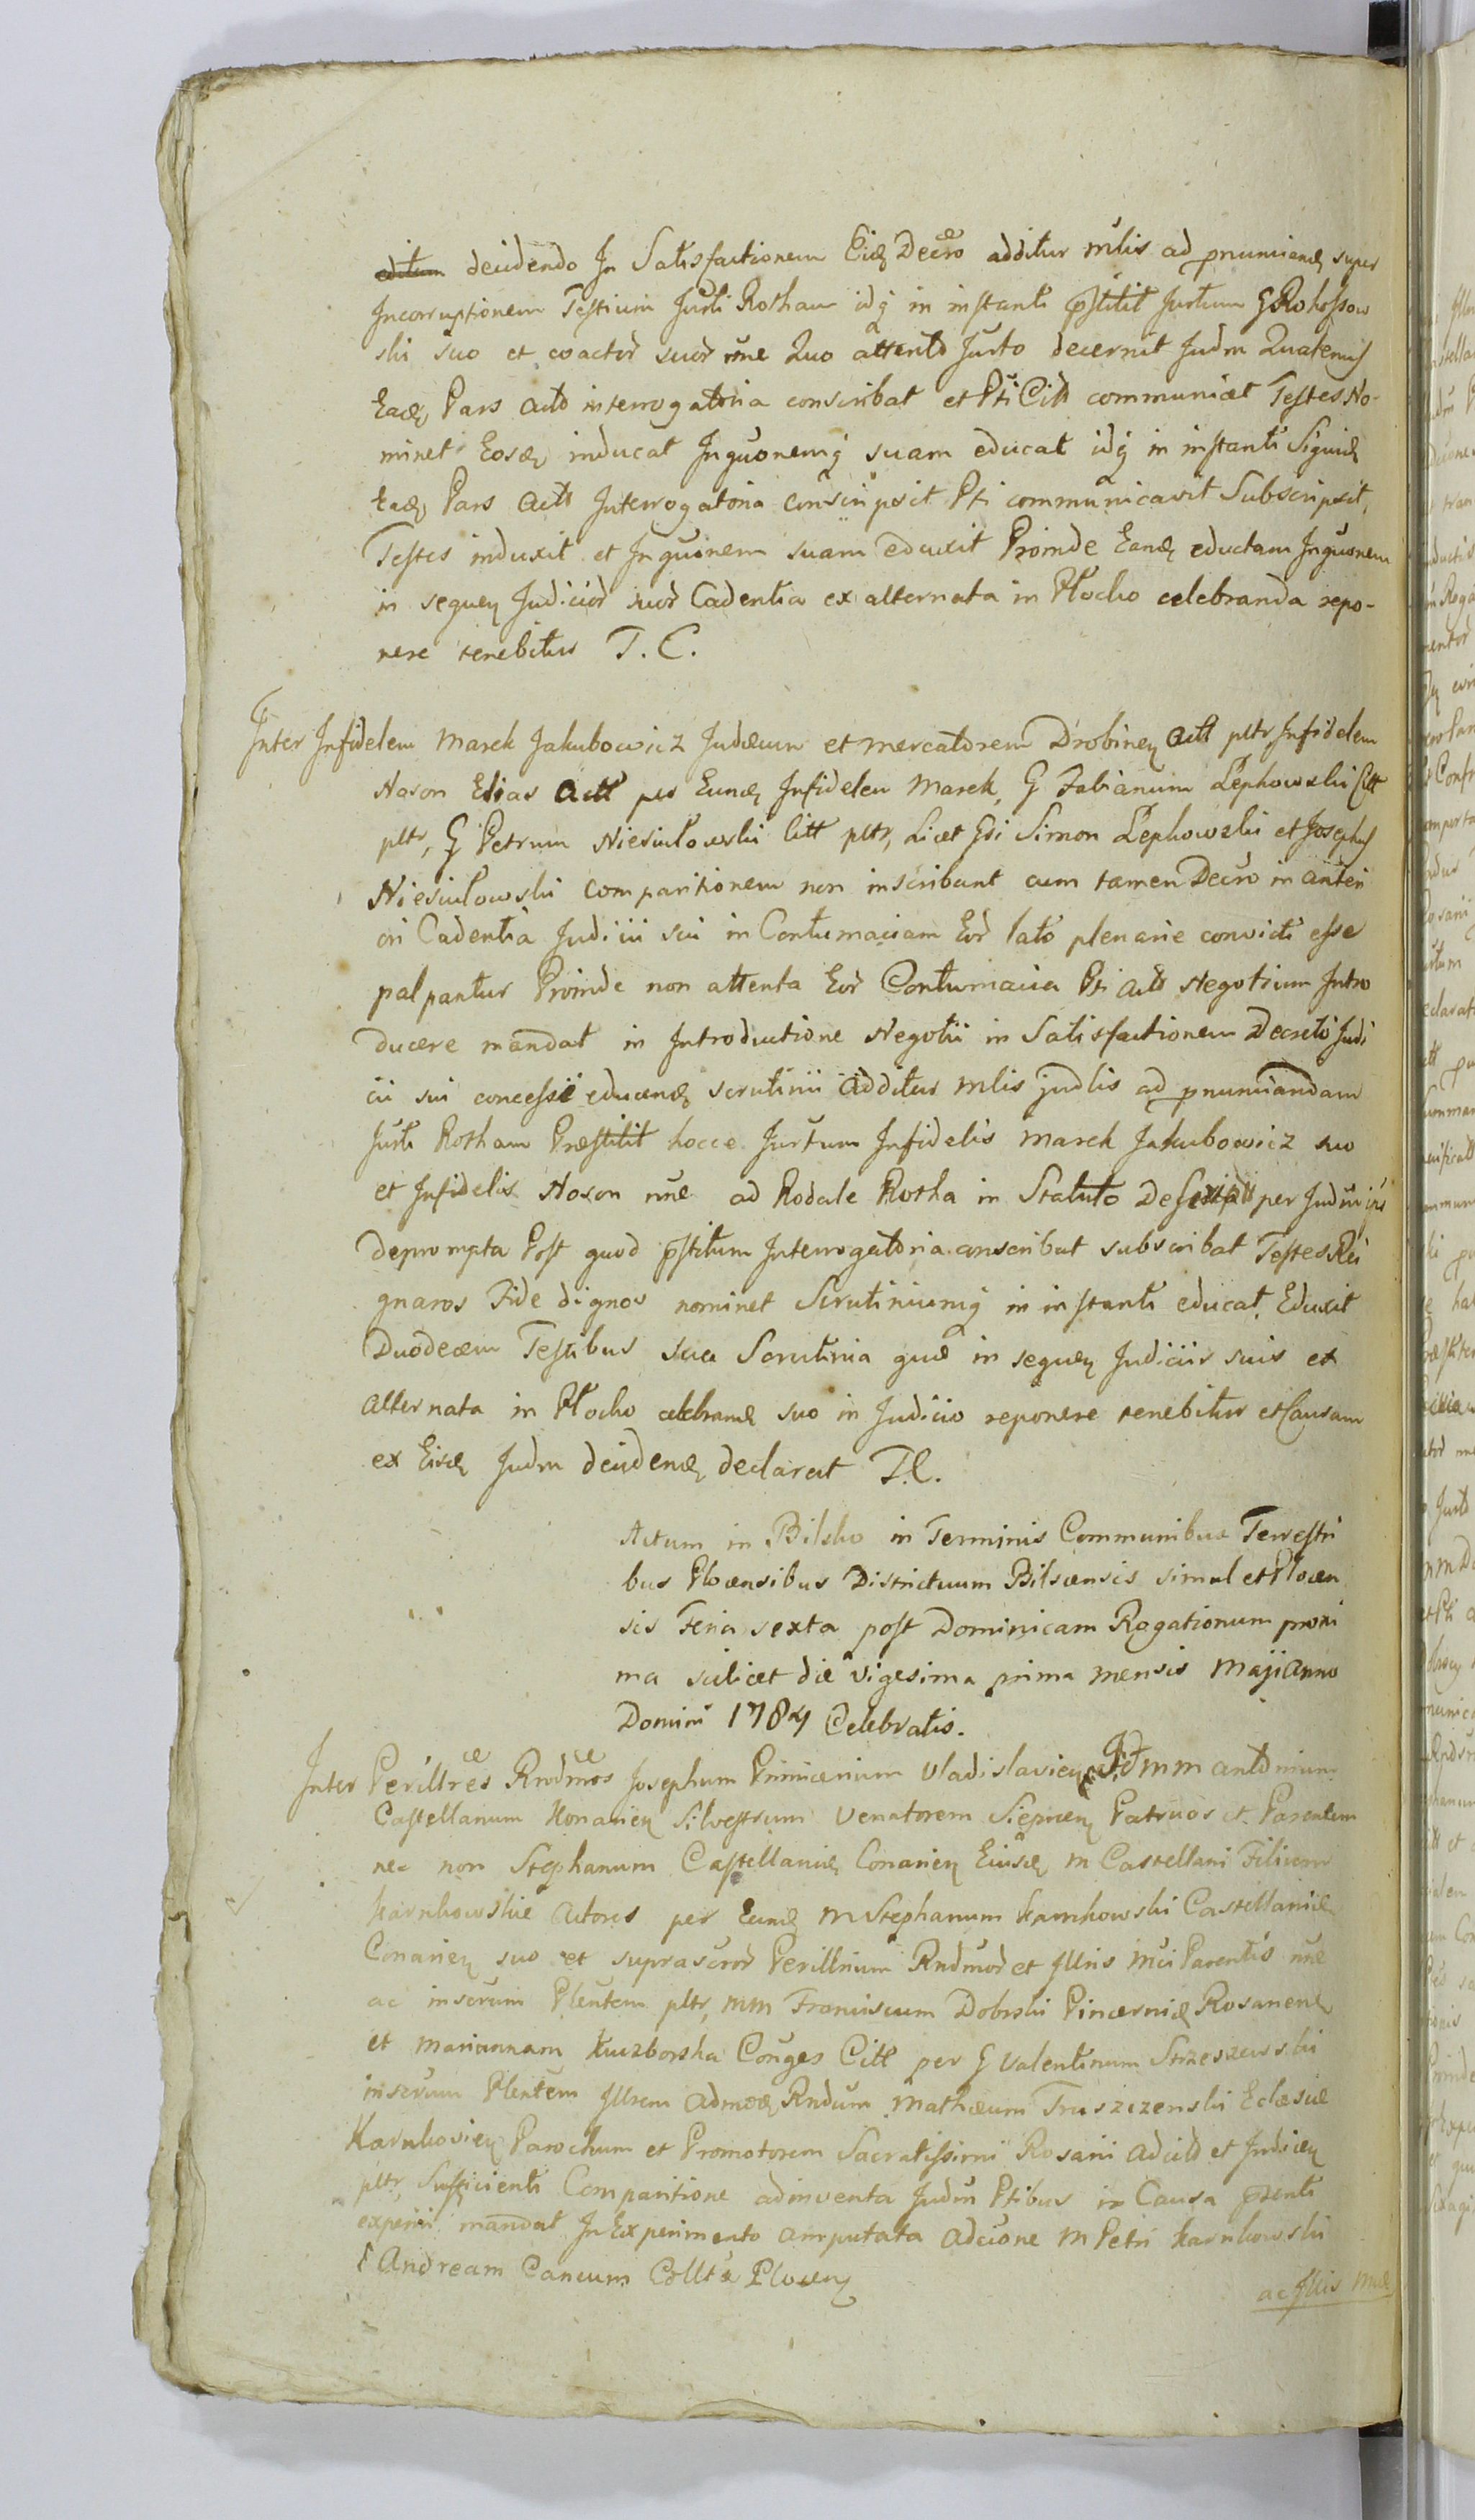 editum decidendo In Satisfactionem Eius Decro additur mlis ad pnuncian super
Incorruptionem Testium Jurti Rotham idq in instanti pstitit Jurtum G Rokossow
ski suo et coactor suor nne Quo attento Jurto decernit Judm Quatenus
Ead Pars Actt interrogatoria conscribat et Pti Citt communicet Testes No-
minet Eosq inducat Inquonemq suam educat idq in instanti Siquid
ead Pars Actt Interrogatoria conscripsit Pti communicavit Subscripsit,
Testes induxit et Inquonem suam eduxit Proinde Eand eductam Inquonem
in sequen Judicior suor Cadentia ex alternata in Płocko celebranda repo-
nere tenebitur T. C.
Inter Infidelem Marek Jakubowicz Judæum et mercatorem Drobinen Actt pltr Infidelem
Noson Elias Actt per Eund Infidelem Marek, G Fabianum Łępkowski Citt
pltr, G Petrum Niesiułowski Citt pltr, Licet Gsi Simon Łępkowski et Josephus
Niesiułowski Comparitionem non inscribant cum tamen Decro in anteri
ori Cadentia Judicii sui in Contumaciam Eor lato plenarie convicti esse
palpantur Proinde non attenta Eor Contumacia Pti Actt Negotium Intro
ducere mandat in Introductione Negotii in Satisfactionem Decreti Judi
cii sui concessi educend scrutinii Additur mlis judlis ad pnunciandam
Jurti Rotham Præstitit hocce Jurtum Infidelis Marek Jakubowicz suo
et Infidelis Noson nne ad Rodale Rotha in Statuto Descripta per Judm
deprompta Post quod pstitum Interrogatoria conscribat subscribat Testes Rei
gnaros Fide dignos nominet Scrutiniumq in instanti educat Eduxit
Duodecem Testibus sua Scrutinia quæ in sequen Judiciis suis ex
alternata in Płocko celebrand suo in Judicio reponere tenebitur et Causam
ex Eisd Judm deciden declarat T. C.
Actum in Bilsko in Terminis Communibus Terrestri
bus Plocensibus Districtuum Bilscensis simul et Plocen
sis Feria sexta post Dominicam Rogationum proxi
ma scilicet die vigesima prima mensis Maji Anno
Domini 1784 Celebratis.
Inter Perillres Rndmos Josephum Primicerium Vladislavien mm Antonium
Castellanum Konarien Silvestrum Venatorem Sieprcen Patruos et Parentem
nec non Stephanum Castellanid Conarien Eiusd m Castellani Filium
Karnkowskie Actores per Eund M Stephanum Karnkowski Castellanid
Conarien suo et suprascror Perillrium Rndmor et Illris Mci Parentis nne
ac inscrum Plentem pltr, MM Franciscum Dobrski Pincernid Rosanen
et Mariannam Kuczborska Conges Citt per G Valentinum Strzeszewski
inscrum Plentem Illrem Admod Rndum Mathæum Truszczenski Eclæsiæ
Karnkovien Parochum et Promotorem Sacratissimi Rosarii Adcitt et Judicen
pltr, Sufficienti Comparitione adinventa Judm Ptibus in Causa psenti
experiri mandat In Experimento amputata adcione M Petri Karnkowski
Andream Cancum Collte Plocen
ac Illis